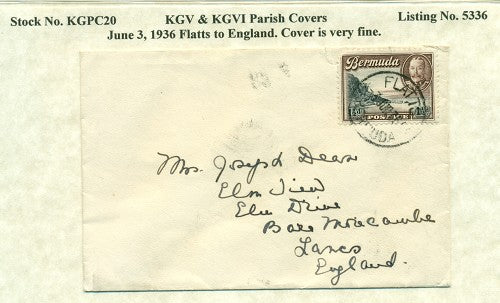 Stock No. KGPC20 KGV & KGVI Parish Covers Listing No. 5336
June 3, 1936 Flatts to England. Cover is very fine.
Bermuda
FLATT
POSTAGE
Mrs. Joseph Dean
Elm View
Elm Drive
Bare Morecambe
Lancs
England.